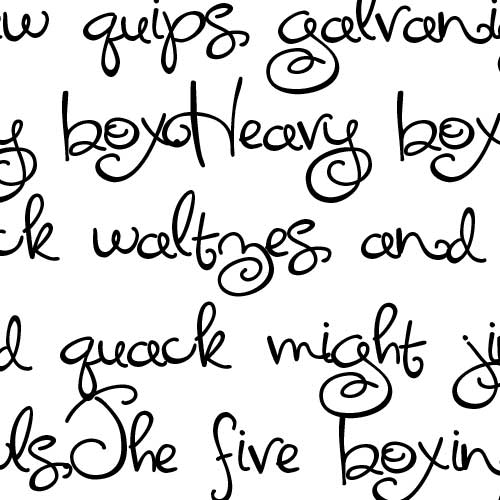 ew quips galvani
y boxHeavy box
ck waltzes and
d quack might ji
wls.The five boxin